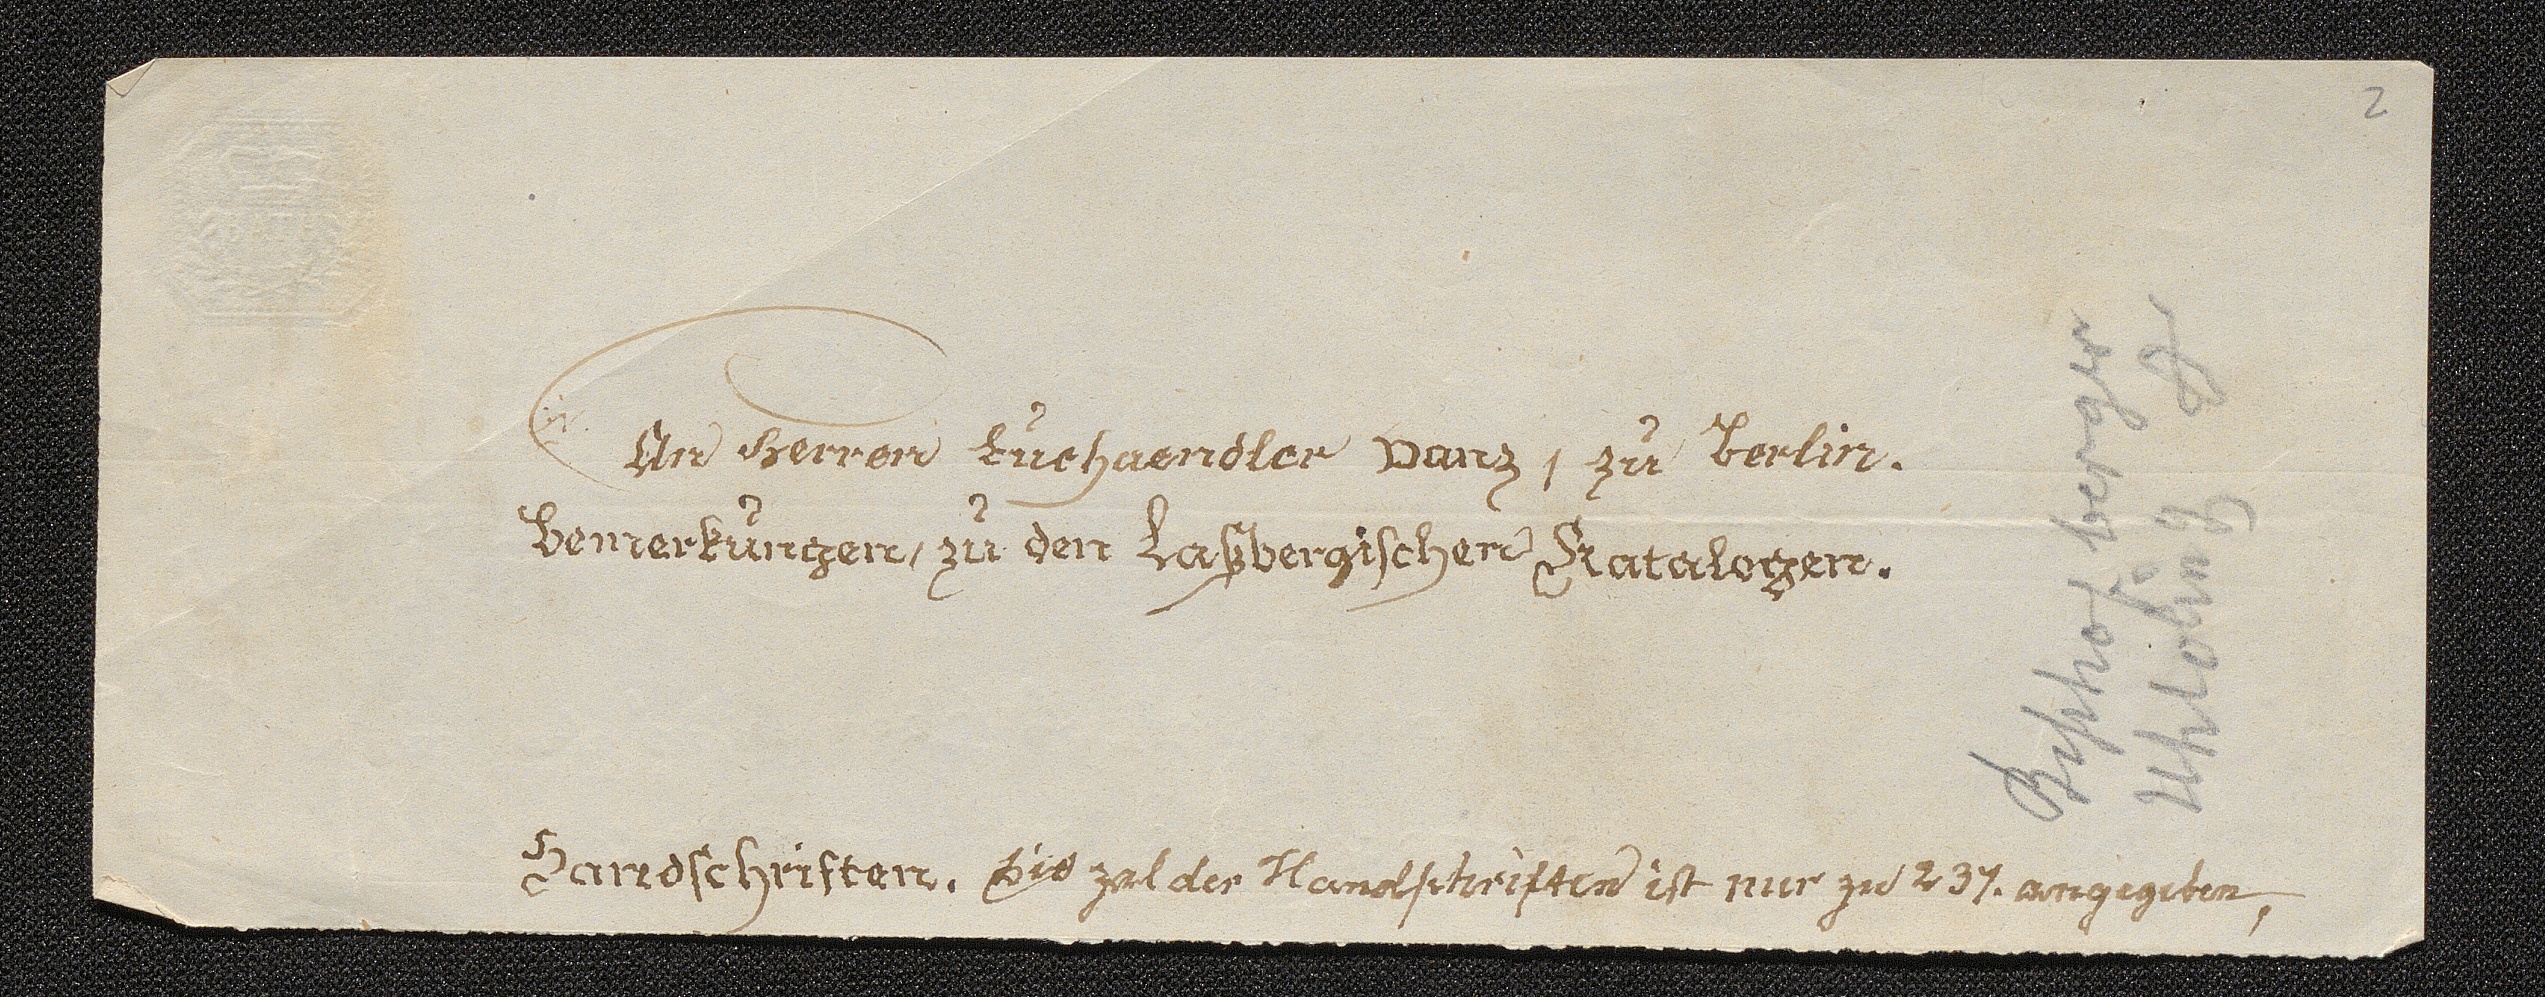 2
An Herren Buchaendler Danz, zu Berlin.
Bemerkungen, zu den Laßbergischen Katalogen.
Handschriften. die zal der Handschriften ist nur zu 237. angegeben,
BATH